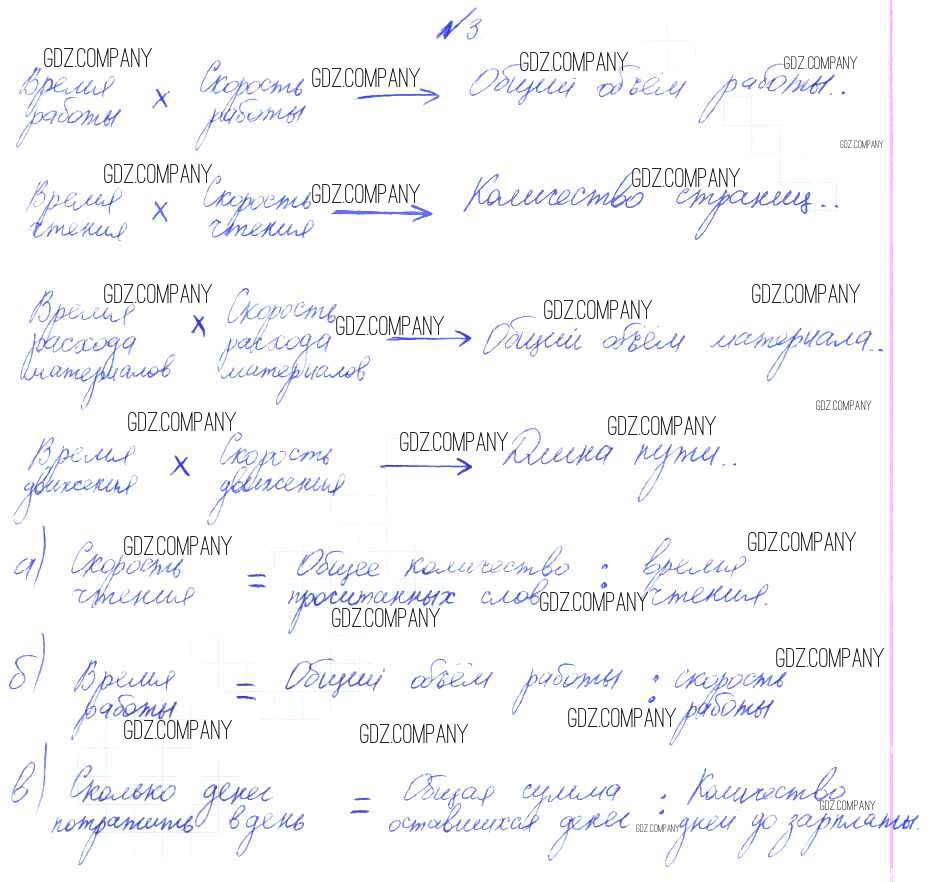 №3
GDZ.COMPANY GDZ.COMPANY GDZ.COMPANY
Время Скорость GDZ.COMPANY Общий объём работы..
работы × работы →
GDZ.COMPANY
GDZ.COMPANY GDZ.COMPANY
Время Скорость GDZ.COMPANY Количество страниц..
чтения × чтения →
GDZ.COMPANY GDZ.COMPANY GDZ.COMPANY
Время Скорость
расхода × расхода GDZ.COMPANY → Общий объём материала..
материалов материалов
GDZ.COMPANY
GDZ.COMPANY GDZ.COMPANY
Время Скорость GDZ.COMPANY Длина пути..
движения × движения →
GDZ.COMPANY GDZ.COMPANY
а) Скорость = Общее количество : время
чтения прочитанных слов GDZ.COMPANY чтения.
GDZ.COMPANY
GDZ.COMPANY
б) Время = Общий объём работы : скорость
работы GDZ.COMPANY работы
GDZ.COMPANY GDZ.COMPANY
в) Сколько денег = Общая сумма : Количество
GDZ.COMPANY
потратить в день оставшихся денег GDZ.COMPANY дней до зарплаты.